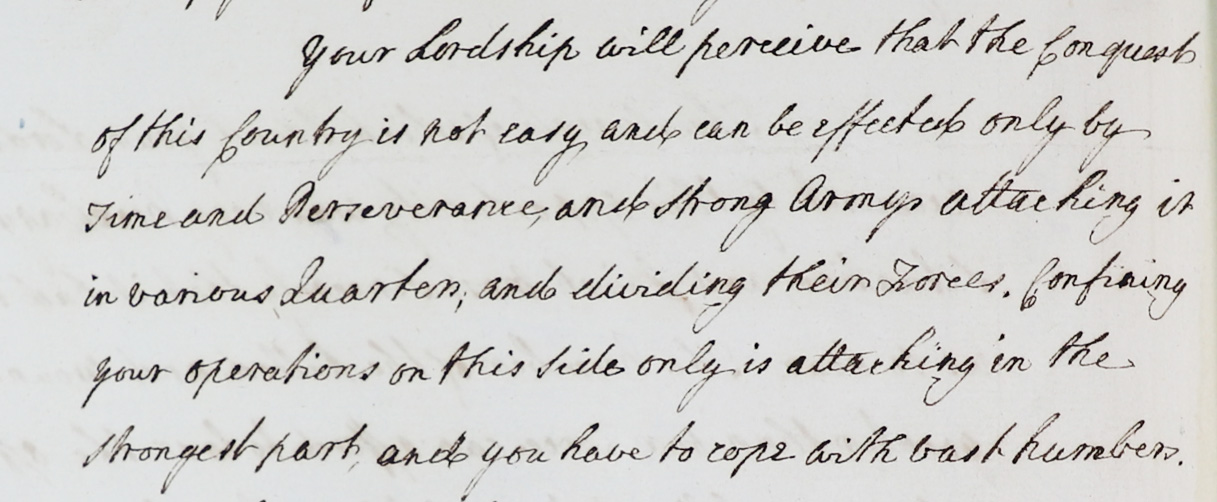 Your Lordship will perceive that the Conquest
of this Country is not easy and can be effected only by
Time and Perseverance, and strong Armys attacking it
in various Quarters, and dividing their Forces. Confining
your operations on this side only is attacking in the
strongest part, and you have to cope with vast humbers.